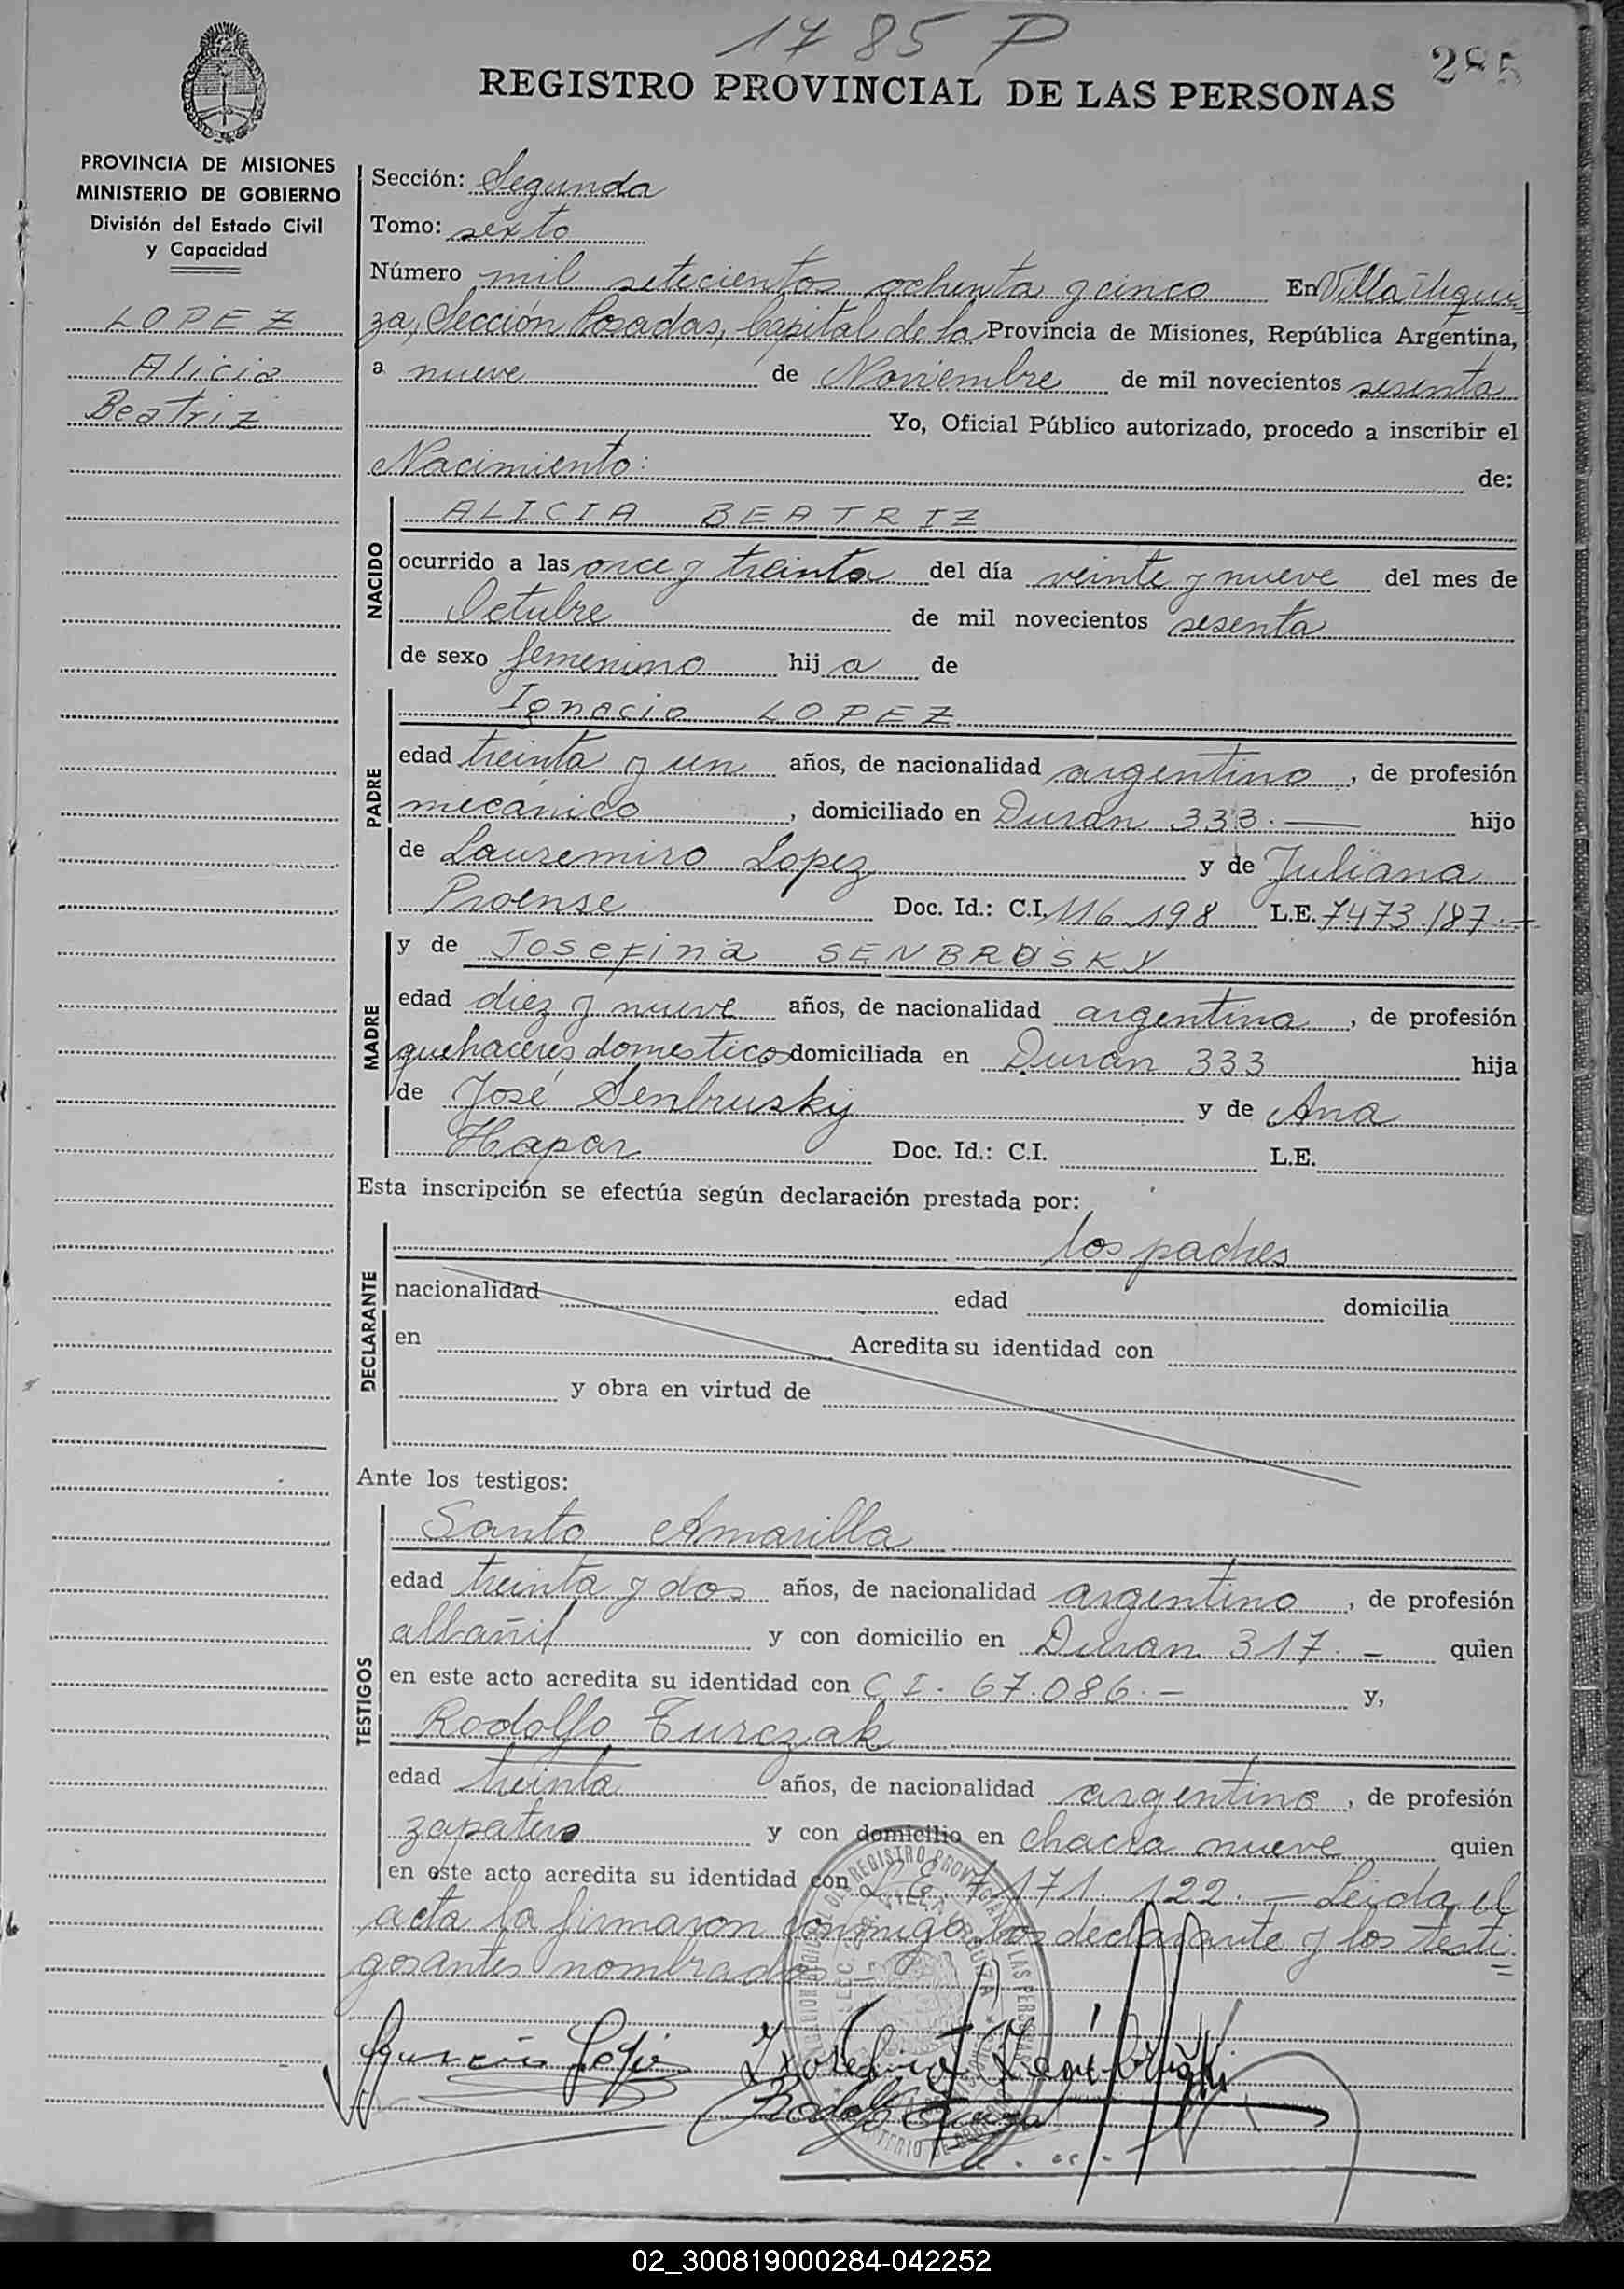 1785 P
285
REGISTRO PROVINCIAL DE LAS PERSONAS
PROVINCIA DE MISIONES
MINISTERIO DE GOBIERNO
División del Estado Civil
y Capacidad
LOPEZ
Alicia
Beatriz
Sección: Segunda
Tomo: sexto
Número mil setecientos ochenta y cinco En Villa Urqui=
za, Sección Posadas, Capital de la Provincia de Misiones, República Argentina,
a nueve de Noviembre de mil novecientos sesenta
Yo, Oficial Público autorizado, procedo a inscribir el
Nacimiento: de:
NACIDO
ALICIA BEATRIZ
ocurrido a las once y treinta del día veinte y nueve del mes de
Octubre de mil novecientos sesenta
de sexo femenino hij a de
PADRE
Ignacio LOPEZ
edad treinta y un años, de nacionalidad argentino, de profesión
mecánico, domiciliado en Duran 333.— hijo
de Lauremiro Lopez y de Juliana
Proense Doc. Id.: C.I. 116.198 L.E. 7473.187.-
MADRE
y de Josefina SENBROSKY
edad diez y nueve años, de nacionalidad argentina, de profesión
quehaceres domesticos domiciliada en Duran 333 hija
de José Senbrusky y de Ana
Hapar Doc. Id.: C.I. L.E.
Esta inscripción se efectúa según declaración prestada por:
DECLARANTE
los padres
nacionalidad edad domicilia
en Acredita su identidad con
y obra en virtud de
Ante los testigos:
TESTIGOS
Santo Amarilla
edad treinta y dos años, de nacionalidad argentino, de profesión
albañil y con domicilio en Duran 317.- quien
en este acto acredita su identidad con C.I. 67.086.- y,
Rodolfo Turczak
edad treinta años, de nacionalidad argentino, de profesión
zapatero y con domicilio en chacra nueve quien
en este acto acredita su identidad con L.E. 7.171.122.- Leida el
acta la firmaron conmigo los declarante y los testi=
gos antes nombrados
02_300819000284-042252